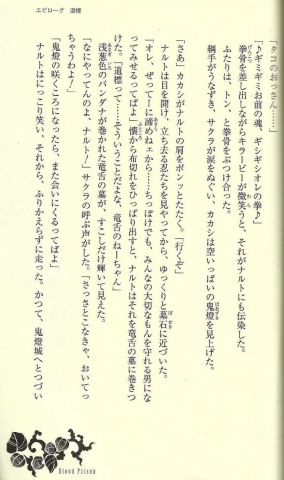 エピローグ 道標
「タコのおっさん……」
「♪ギミギミお前の魂、ギシギシオレの拳♪」
拳骨を差し出しながらキラービーが微笑うと、それがナルトにも伝染した。
ふたりは、トン、と拳骨をぶつけ合った。
綱手がうなずき、サクラが涙をぬぐい、カカシは空いっぱいの鬼燈を見上げた。
「さあ」カカシがナルトの肩をポンッとたたく。「行くぞ」
ナルトは目を開け、立ち去る忍たちを見やってから、ゆっくりと墓石に近づいた。
「オレ、ぜってーに諦めねェから……ちっぽけでも、みんなの大切なもんを守れる男にな
ってみせるってばよ」懐から布切れをひっぱり出すと、ナルトはそれを竜舌の墓に巻きつ
けた。「道標って……そういうことだよな、竜舌のねーちゃん」
浅葱色のバンダナが巻かれた竜舌の墓が、すこしだけ輝いて見えた。
「なにやってんのよ、ナルト！」サクラの呼ぶ声がした。「さっさとこなきゃ、おいてっ
ちゃうわよ！」
「鬼燈の咲くころになったら、また会いにくるってばよ」
ナルトはにっこり笑い、それから、ふりかえらずに走った。かつて、鬼燈城へとつづい
Blood Prison